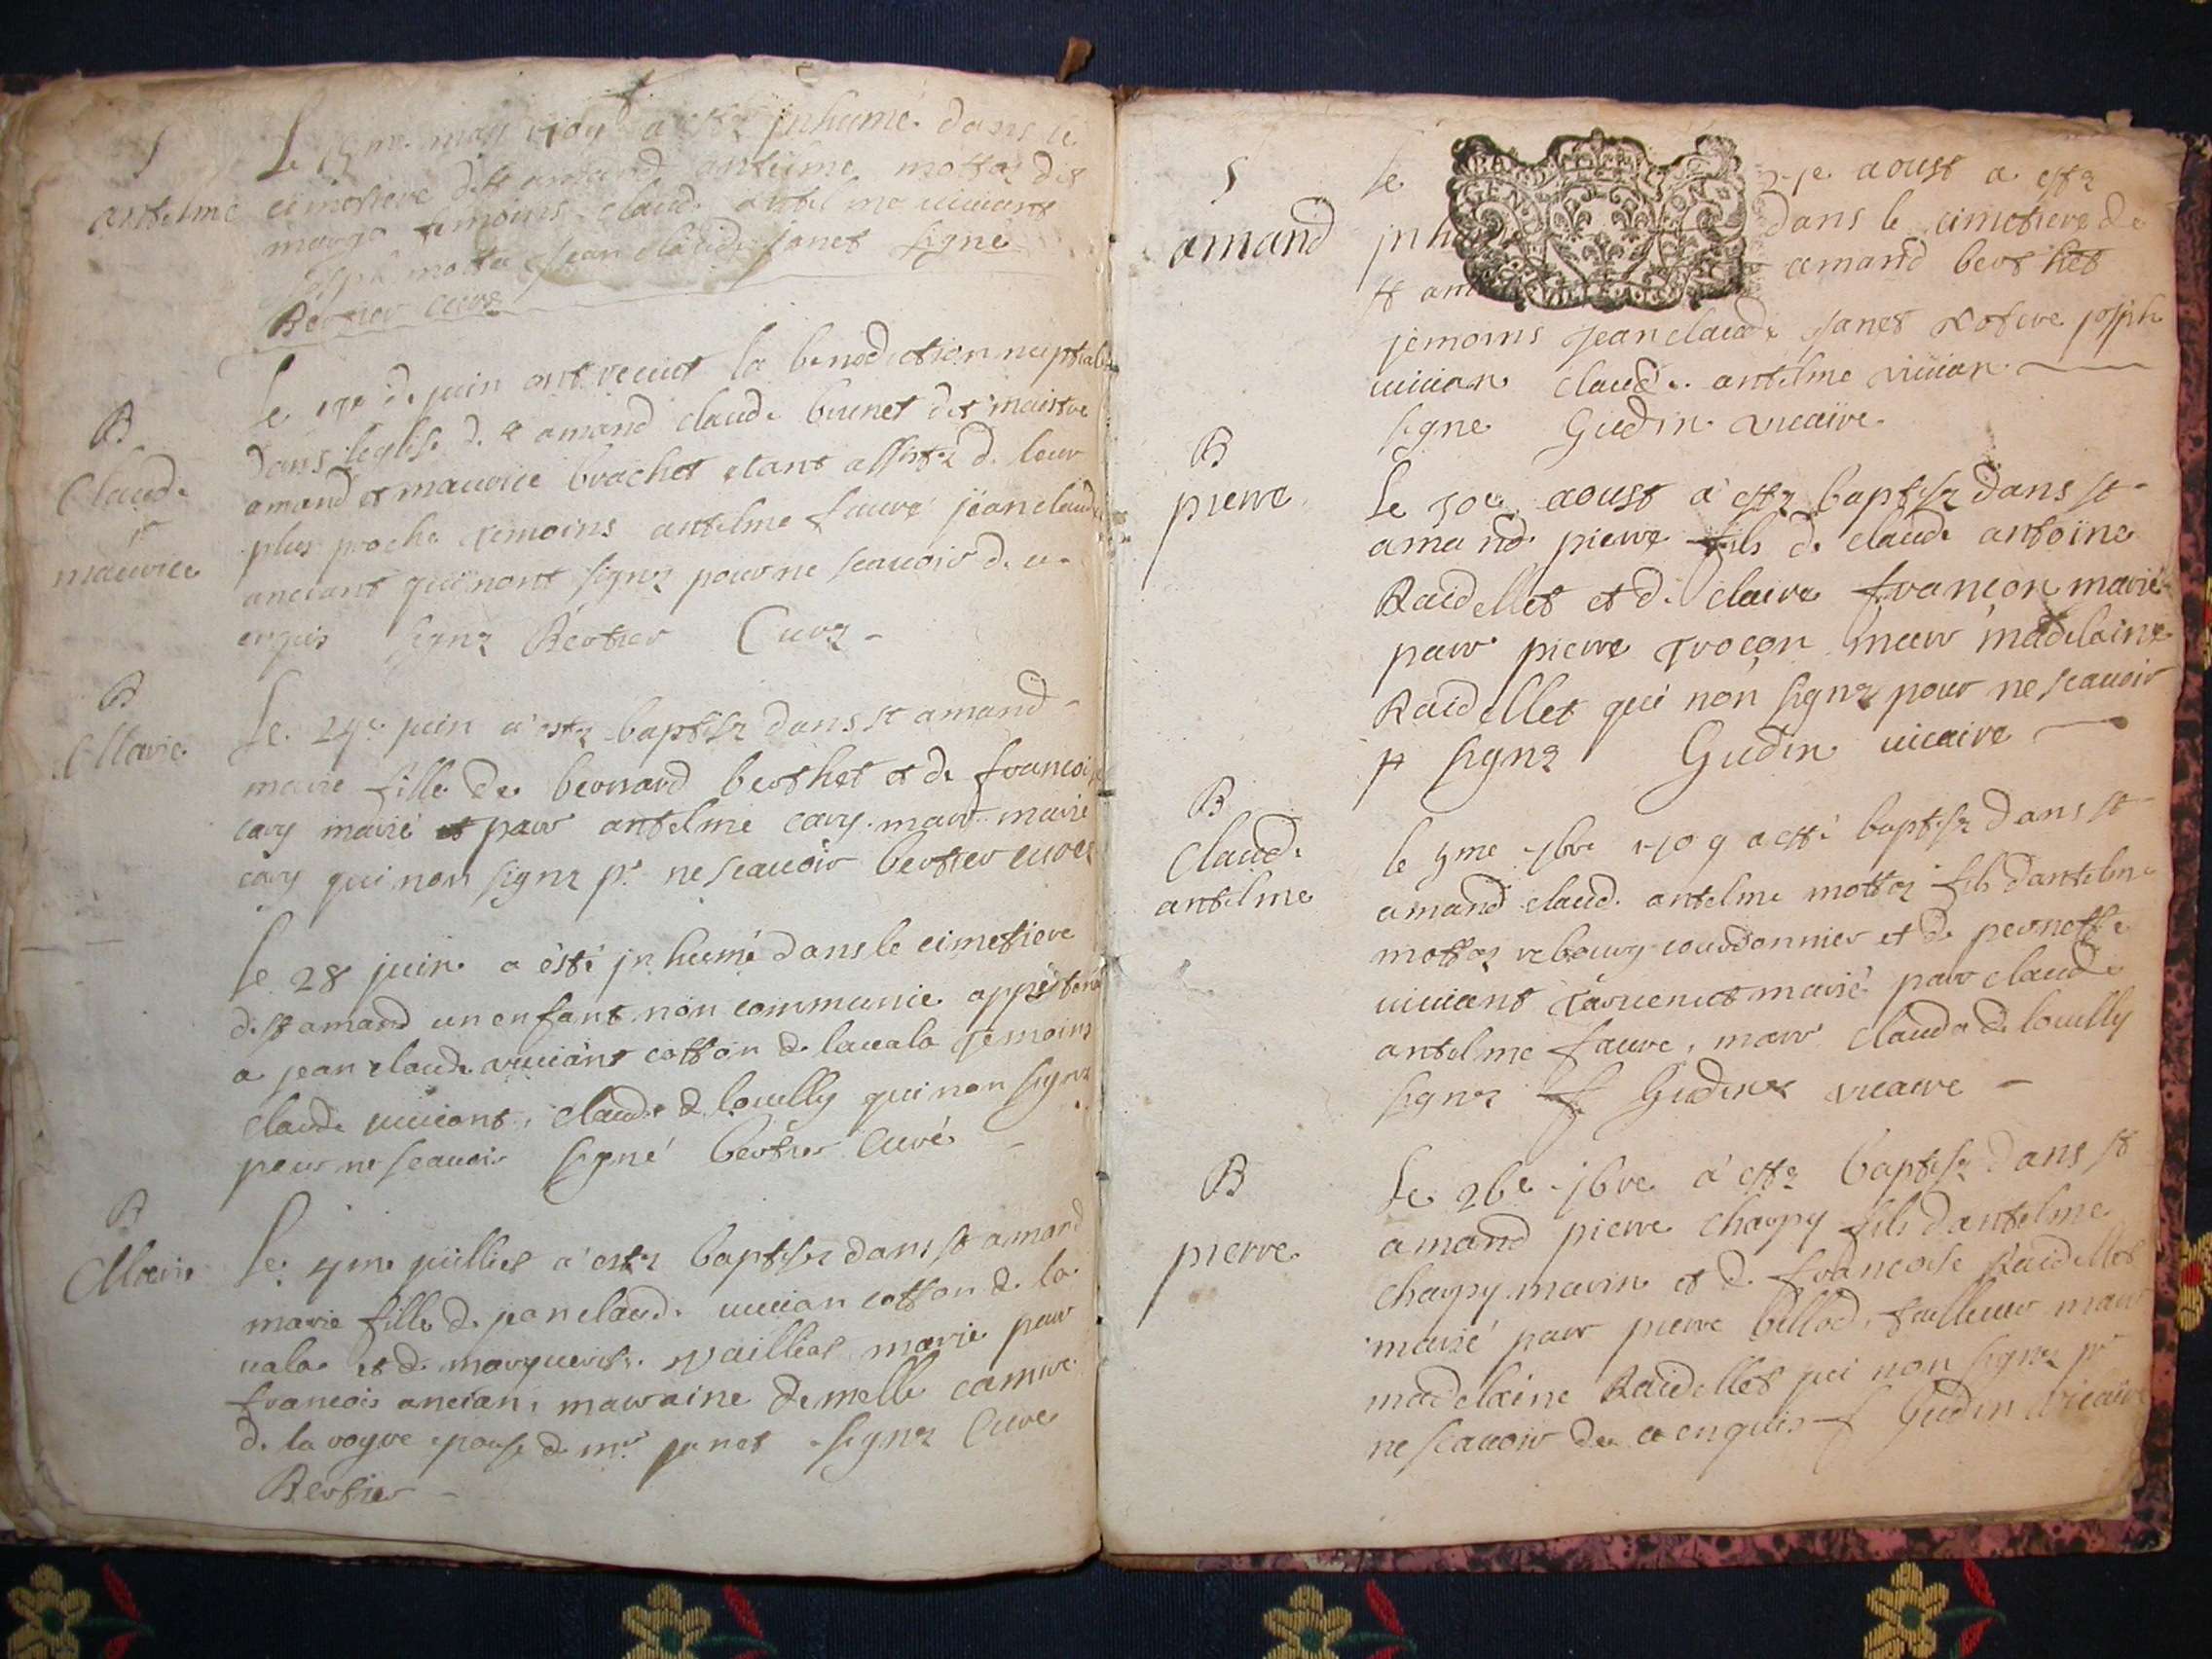 S
antelme
Le may 1709 a esté jnhumé dans le
cimetiere de st amand antelme mottaz dit
temoins claude antelme uiuiant
motta jean claude janet signé
Bertier curé
B
Claude
et
maurice
Le de juin ont receuut la benediction nuptiale
dans leglise de st amand claude brunet dit maistre
amand et maurice brachet etant assistez de leur
plus proche temoins antelme faure jean claude
anciant qui nont signez pour ne scauoir de ce
enquis signez Bertier Curé
B
Marie
Le 24e juin a estez baptisez dans st amand
marie fille de bernard berthet et de francoise
cary marié et parr antelme cary marr marie
cary qui non signez pr ne scauoir bertier curé
Le 28 juin a ésté jnhumé dans le cimetiere
de st amand un enfant non communie appartenant
a jean claude uiuiant cotton de lauala temoins
claude uiuiant, claude de louilly qui non signez
pour ne scauoir signé bertier Curé
B
Marie
Le 4me juilliet a estez baptisez dans st amand
marie fille de jean claude uiuian cotton de la
uala et de marguerite uailliet marie parr
francois ancian, marraine demelle
de la royre epouse de mr janet signez Cure
Bertier
S
amand
Le aoust a estez
jnh dans le cimetiere de
st am amand berthet
temoins jean claude janet notere joseph
uiuian claude antelme uiuian
signe Gudin uicaire
B
pierre
Le 30e aoust a estez baptisez dans st
amand pierre fils de claude antoine
Raidellet et de claire francon marié
parr pierre trocon marr madelaine
Raidellet qui non signez pour ne scauoir
signez Gudin uicaire
B
Claude
antelme
le 9me 7bre 1709 a esté baptisez dans st
amand claude antelme mottaz fils dantelme
mottaz rebourg courdonnier et de pernette
uiuiant taruenut marié parr claude
antelme faure, marr clauda de louilly
signez Gudin uicaire
B
pierre
Le 26e 7bre a estez baptisez dans st
amand pierre charpy fils dantelme
charpy marin et de francoise Raidellet
marié parr pierre billod, tallieur marr
madelaine Raidellet qui non signez pr
ne scauoir de ce enquis Gudin uicaire